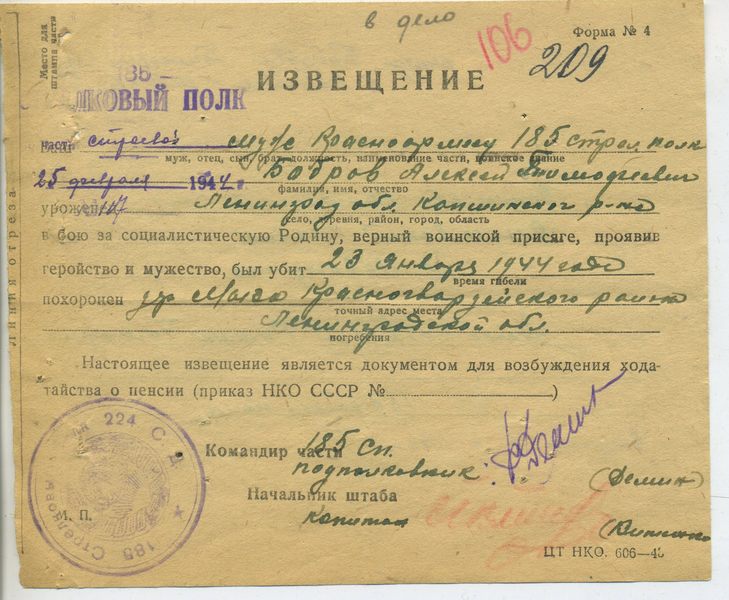 в дело
106
Форма № 4
209
Место для
штампа части
185 -
ЛКОВЫЙ ПОЛК
ИЗВЕЩЕНИЕ
Ваш муж Красноармеец 185 стрел полк
часть строевая
муж, отец, сын, брат, должность, наименование части, воинское звание
25 февраля 1944 г. Бобров Алексей Тимофеевич
фамилия, имя, отчество
урожен Ленинград обл. Капшинского р-на
село, деревня, район, город, область
в бою за социалистическую Родину, верный воинской присяге, проявив
геройство и мужество, был убит 23 января 1944 года
время гибели
похоронен Красногвардейского района
точный адрес места
Ленинградской обл.
погребения
Настоящее извещение является документом для возбуждения хода-
тайства о пенсии (приказ НКО СССР № )
Командир части 185 сп.
подполковник (Демин)
Начальник штаба
капитан
М. П.
224 С Д
185 Стрелковый
ЦТ НКО. 606—43
линия отреза